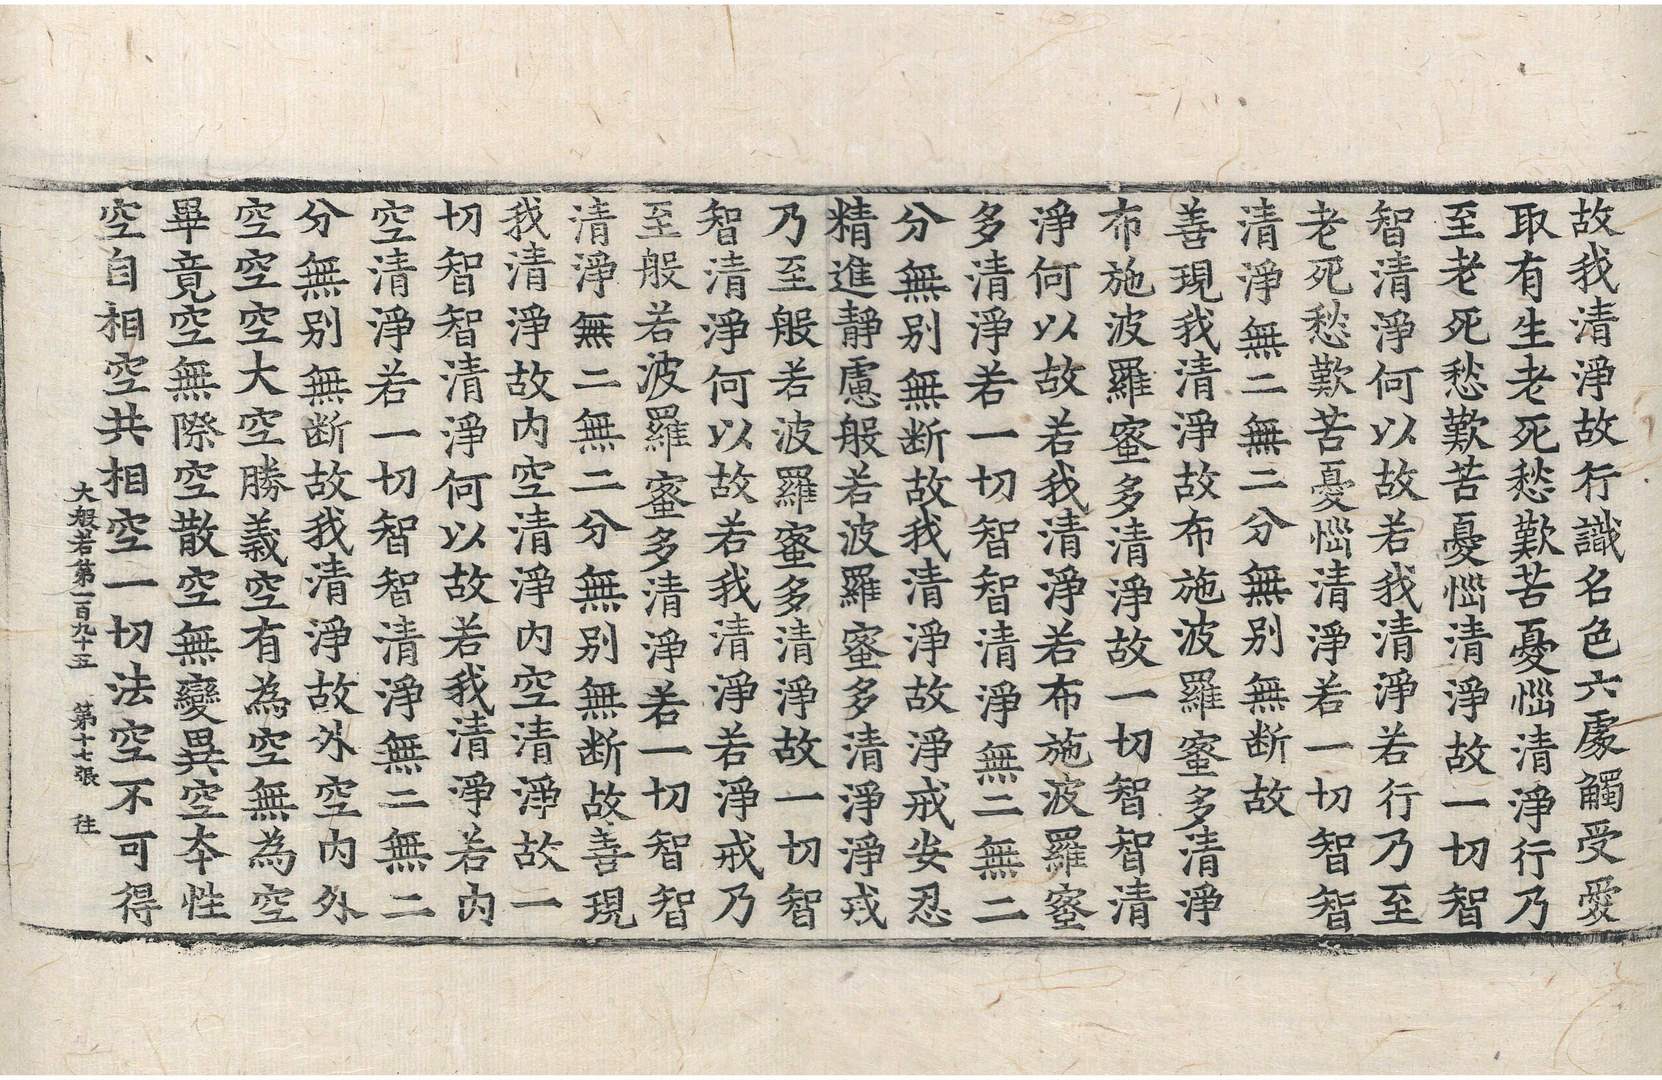 故我清淨故行識名色六處觸受愛
取有生老死愁歎苦憂惱清淨行乃
至老死愁歎苦憂惱清淨故一切智
智清淨何以故若我清淨若行乃至
老死愁歎苦憂惱清淨若一切智智
清淨無二無二分無别無断故
善現我清淨故布施波羅蜜多清淨
布施波羅蜜多清淨故一切智智清
淨何以故若我清淨若布施波羅蜜
多清淨若一切智智清淨無二無二
分無别無断故我清淨故淨戒安忍
精進靜慮般若波羅蜜多清淨淨戒
乃至般若波羅蜜多清淨故一切智
智清淨何以故若我清淨若淨戒乃
至般若波羅蜜多清淨若一切智智
清淨無二無二分無别無断故善現
我清淨故内空清淨内空清淨故一
切智智清淨何以故若我清淨若内
空清淨若一切智智清淨無二無二
分無别無断故我清淨故外空内外
空空空大空勝義空有為空無為空
畢竟空無際空散空無變異空夲性
空自相空共相空一切法空不可得
大般若第一百九十五 第十七張 往